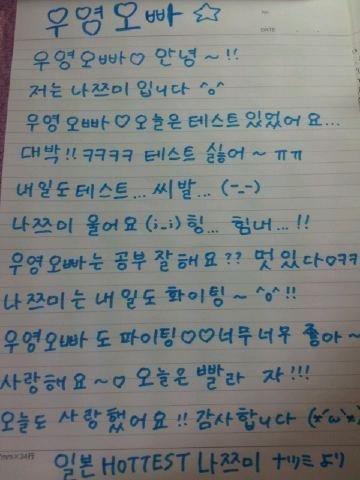 우영오빠 ☆
No.
DATE
우영오빠♡ 안녕~!!
저는 나쯔미 입니다 ^o^
우영오빠♡오늘은 테스트 있었어요...
대박!! ㅋㅋㅋㅋ 테스트 싫어~ ㅠㅠ
내일도 테스트... 씨발... (-_-)
나쯔미 울어요 (i_i) 힝... 힘내...!!
우영오빠는 공부 잘해요?? 멋있다ㅇㅋㅋ
나쯔미는 내일도 화이팅~ ^o^ !!
우영오빠도 파이팅♡♡너무너무 좋아~
사랑해요~♡ 오늘은 빨라 자!!!
오늘도 사랑했어요!! 감사합니다 (x´ω`x)
일본 HOTTEST 나쯔미 ナツミより